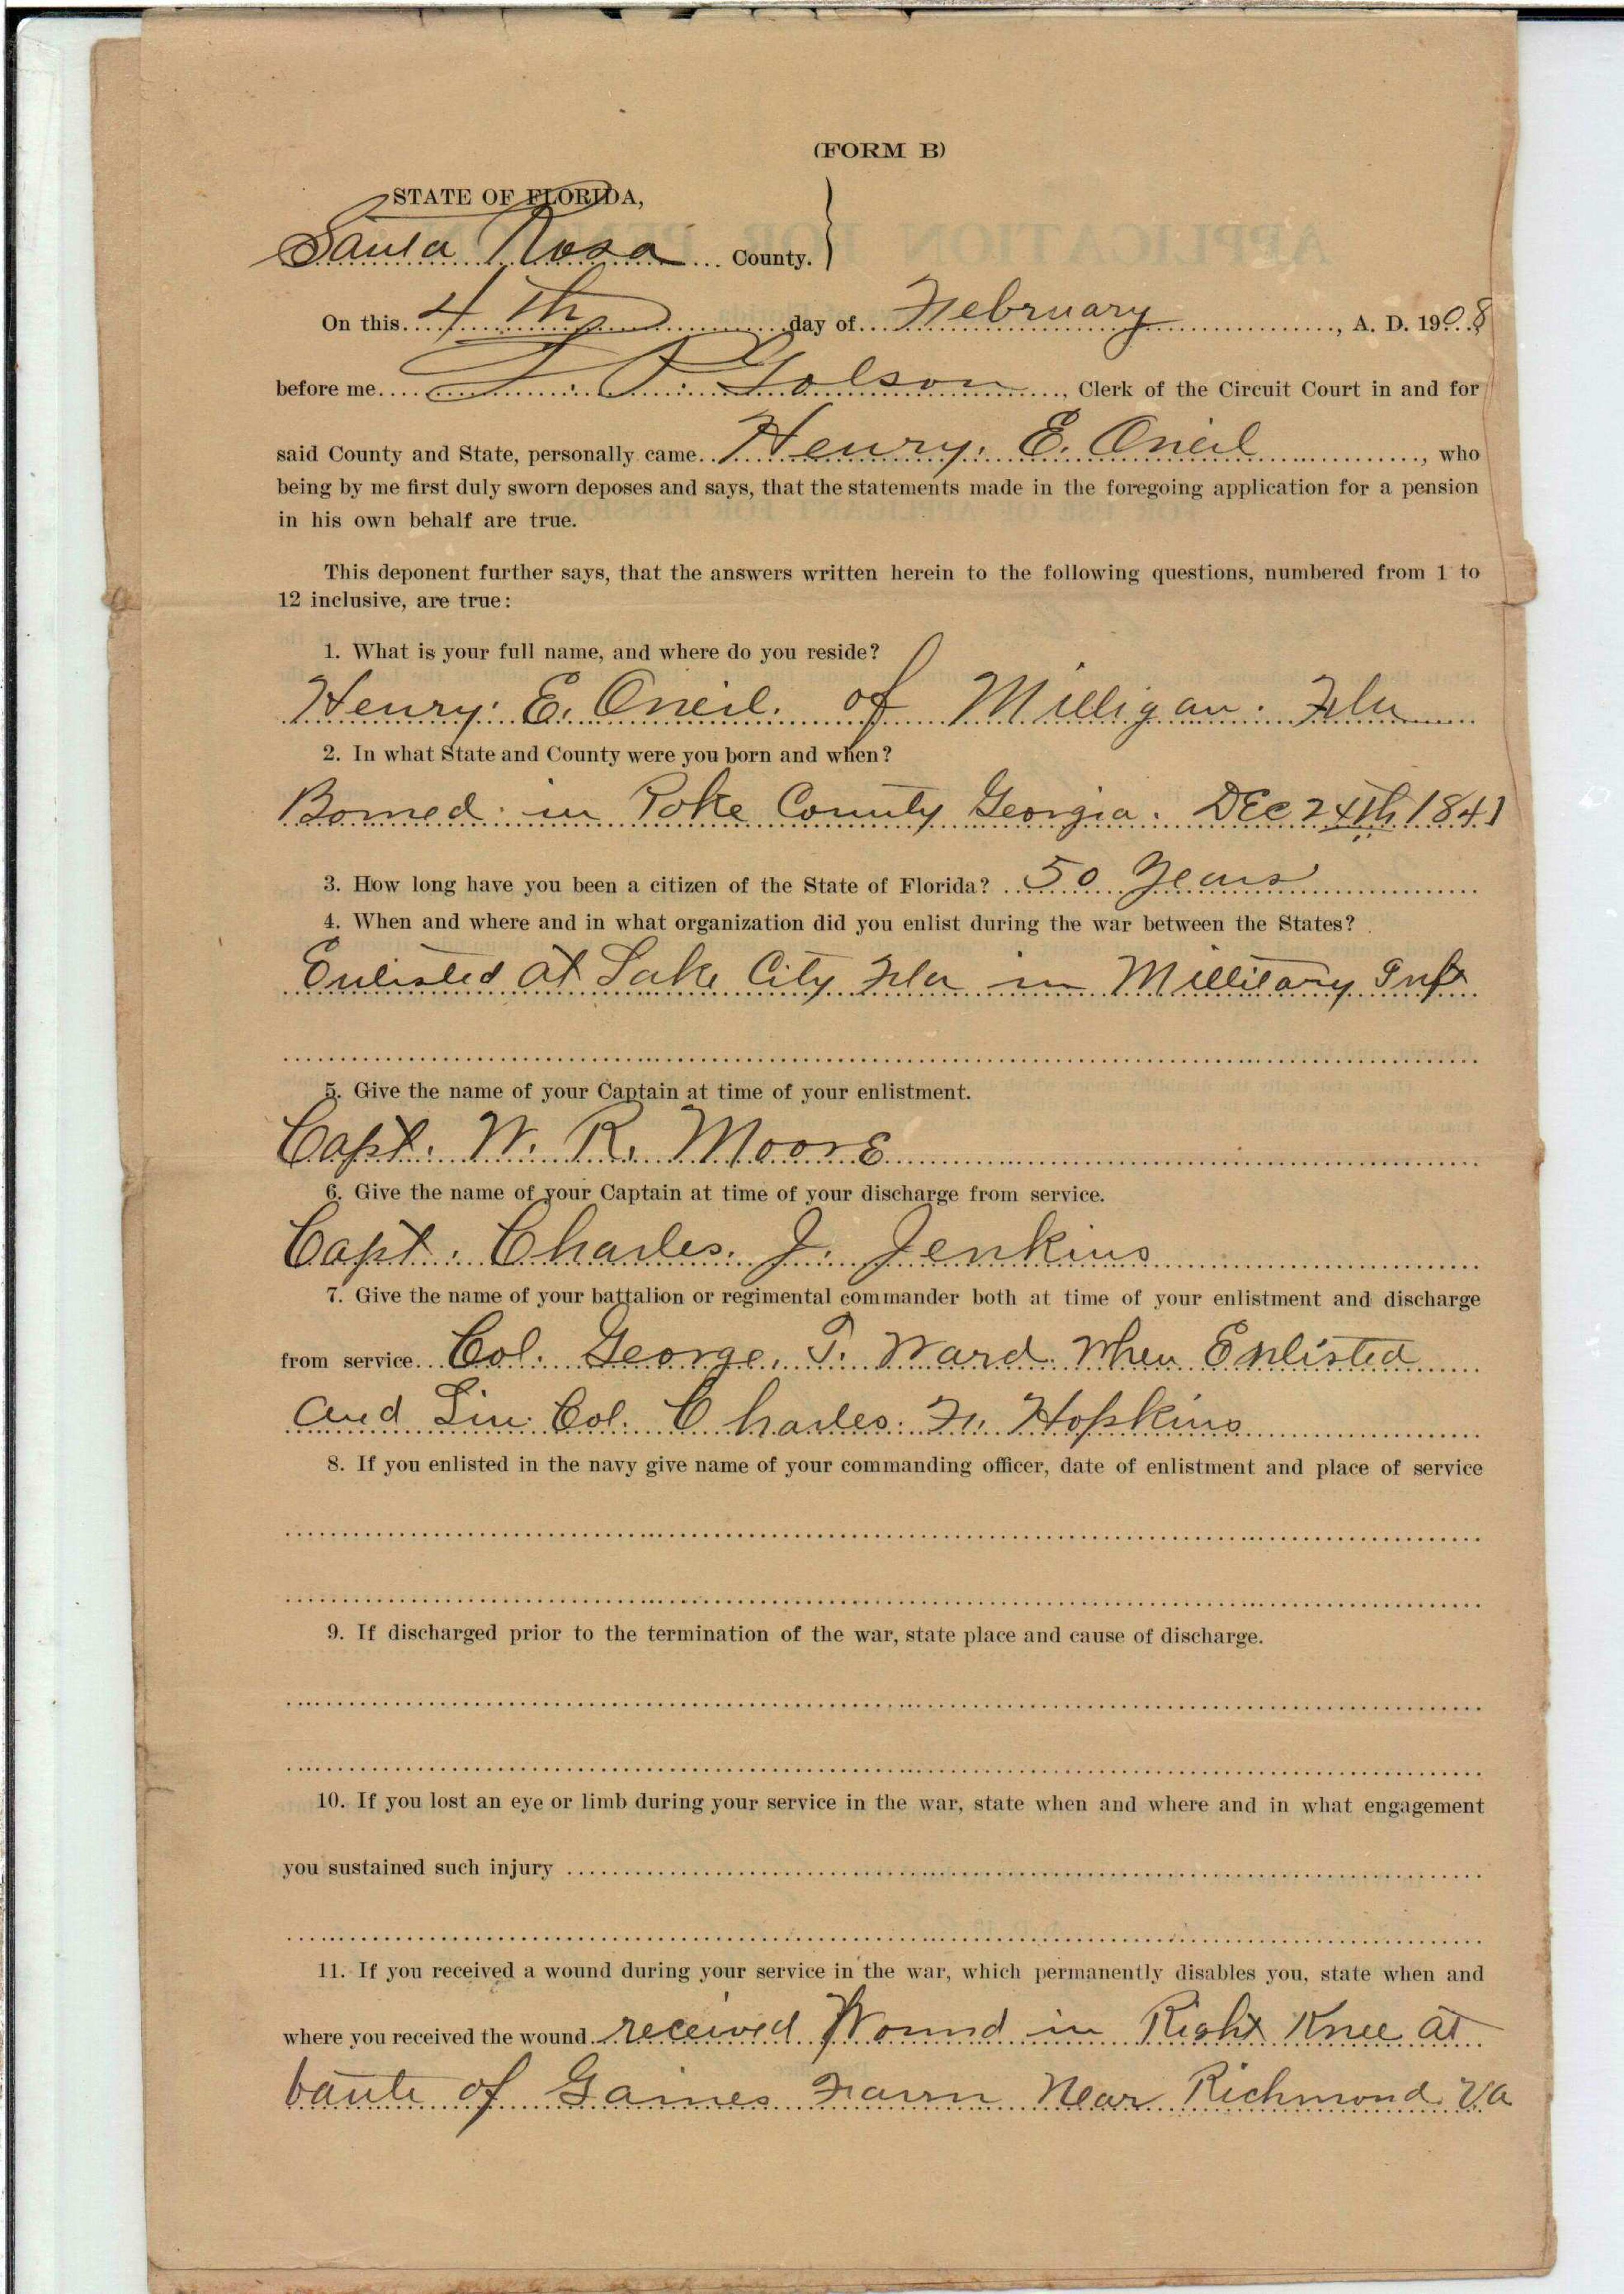 (FORM B)
STATE OF FLORIDA,
Santa Rosa County.
On this 4 Th day of February, A. D. 1908
before me Golson, Clerk of the Circuit Court in and for
said County and State, personally came Henry. E. Oneil, who
being by me first duly sworn deposes and says, that the statements made in the foregoing application for a pension
in his own behalf are true.
This deponent further says, that the answers written herein to the following questions, numbered from 1 to
12 inclusive, are true:
1. What is your full name, and where do you reside?
Henry. E. Oneil. of Milligan. Fla
2. In what State and County were you born and when?
Borned in Poke County Georgia. DEc 24th 1841
3. How long have you been a citizen of the State of Florida? 50 Years
4. When and where and in what organization did you enlist during the war between the States?
Enlisted at Lake City Fla in Millitary Inft
5. Give the name of your Captain at time of your enlistment.
Capt. W. R. Moore
6. Give the name of your Captain at time of your discharge from service.
Capt. Charles. J. Jenkins
7. Give the name of your battalion or regimental commander both at time of your enlistment and discharge
from service Col. George. T. Ward. When Enlisted
and Lin. Col. Charles. F. Hopkins
8. If you enlisted in the navy give name of your commanding officer, date of enlistment and place of service
9. If discharged prior to the termination of the war, state place and cause of discharge.
10. If you lost an eye or limb during your service in the war, state when and where and in what engagement
you sustained such injury
11. If you received a wound during your service in the war, which permanently disables you, state when and
where you received the wound received Wound in Right Knee at
battle of Gaines Farm Near Richmond Va